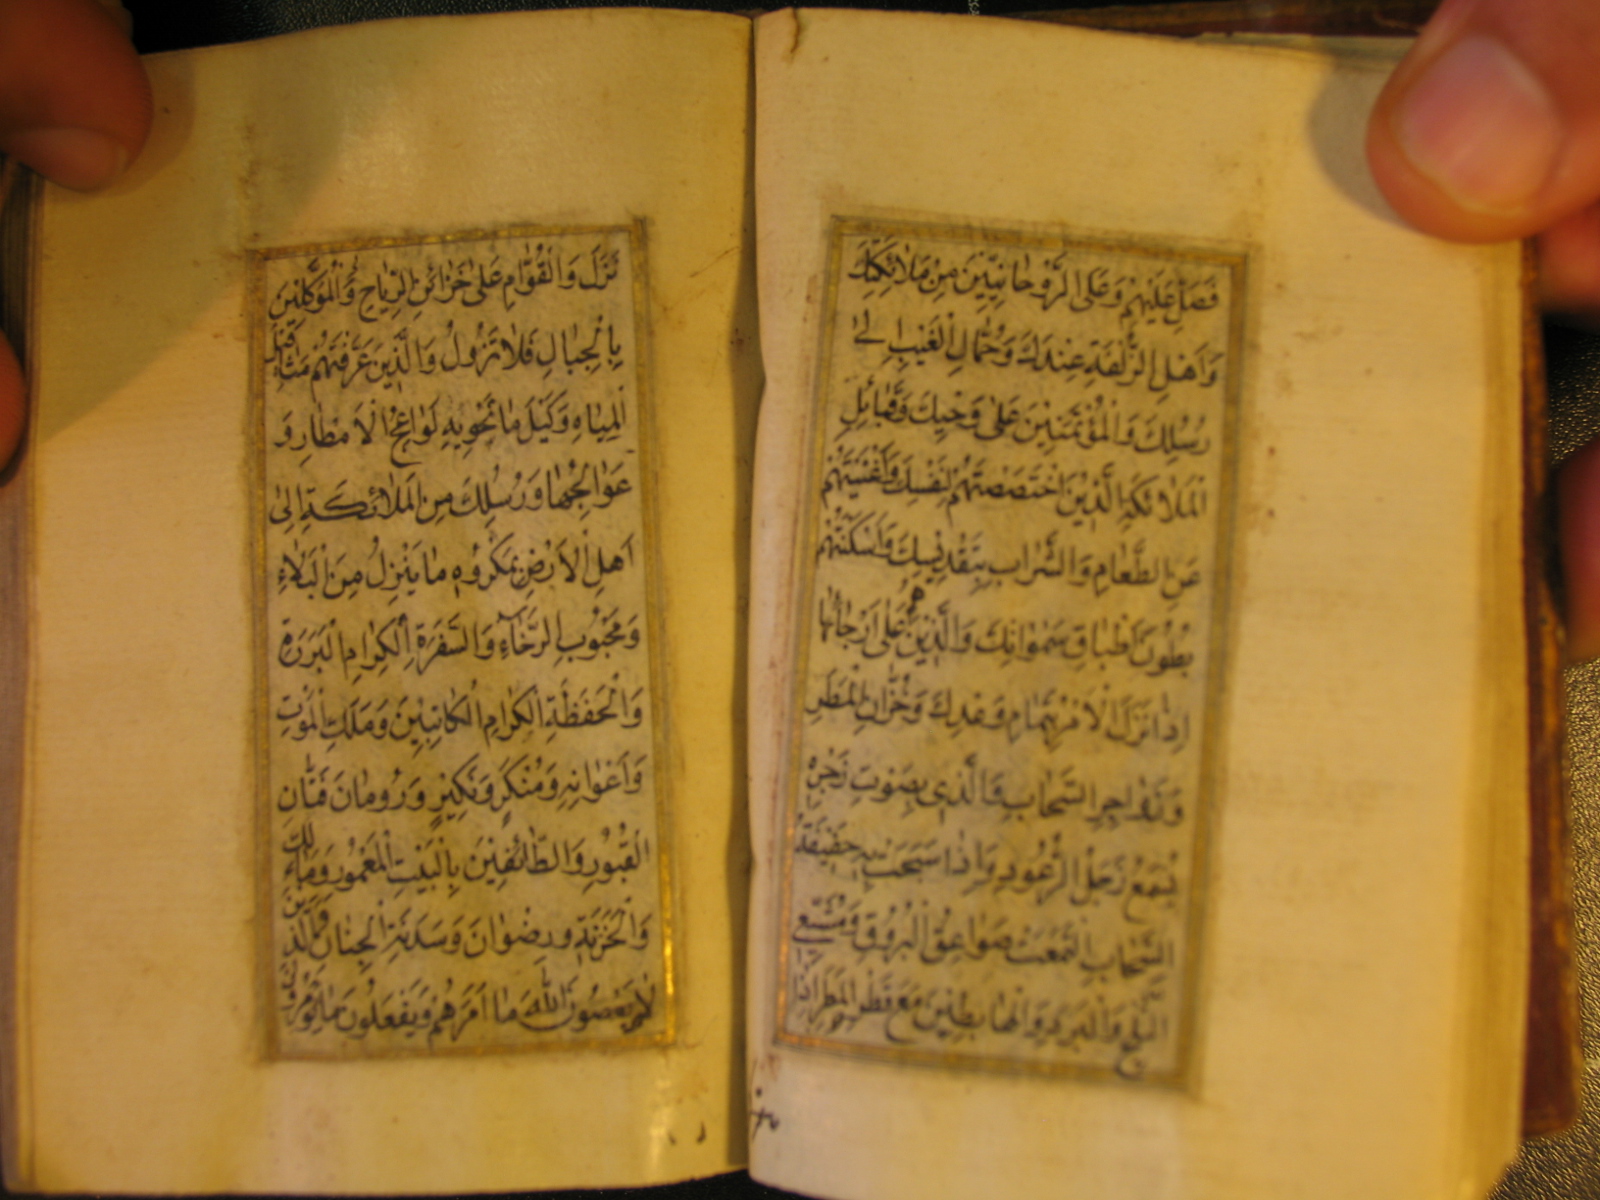 فَصَلِّ عَلَيْهِمْ وَعَلَى الرَّوْحَانِيِّينَ مِنْ مَلَائِكَتِكَ
وَاَهْلِ الزُّلْفَةِ عِنْدَكَ وَحُمَّالِ الْغَيْبِ اِلٰى
رُسُلِكَ وَالْمُؤْتَمَنِينَ عَلٰى وَحْيِكَ وَقَبَائِلِ
الْمَلَائِكَةِ الَّذِينَ اخْتَصَصْتَهُمْ لِنَفْسِكَ وَاَغْنَيْتَهُمْ
عَنِ الطَّعَامِ وَالشَّرَابِ بِتَقْدِيسِكَ وَاَسْكَنْتَهُمْ
بُطُونَ اَطْبَاقِ سَمٰوَاتِكَ وَالَّذِينَ هُمْ عَلٰى اَرْجَائِهَا
اِذَا نَزَلَ الْاَمْرُ بِتَمَامِ وَعْدِكَ وَخُزَّانِ الْمَطَرِ
وَزَوَاجِرِ السَّحَابِ وَالَّذِي بِصَوْتِ زَجْرِهِ
يُسْمَعُ زَجَلُ الرُّعُودِ وَاِذَا سَبَحَتْ بِهِ حَفِيفَةُ
السَّحَابِ الْتَمَعَتْ صَوَاعِقُ الْبُرُوقِ وَمُشَيِّعِي
الثَّلْجِ وَالْبَرَدِ وَالْهَابِطِينَ مَعَ قَطْرِ الْمَطَرِ اِذَا
نَزَلَ وَالْقُوَّامِ عَلٰى خَزَائِنِ الرِّيَاحِ وَالْمُوَكَّلِينَ
بِالْجِبَالِ فَلَا تَزُولُ وَالَّذِينَ عَرَّفْتَهُمْ مَثَاقِيلَ
الْمِيَاهِ وَكَيْلَ مَا تَحْوِيهِ لَوَاعِجُ الْاَمْطَارِ وَ
عَوَالِجُهَا وَرُسُلِكَ مِنَ الْمَلَائِكَةِ اِلٰى
اَهْلِ الْاَرْضِ بِمَكْرُوهِ مَا يَنْزِلُ مِنَ الْبَلَاءِ
وَمَحْبُوبِ الرَّخَآءِ وَالسَّفَرَةِ الْكِرَامِ الْبَرَرَةِ
وَالْحَفَظَةِ الْكِرَامِ الْكَاتِبِينَ وَمَلَكِ الْمَوْتِ
وَاَعْوَانِهِ وَمُنْكَرٍ وَنَكِيرٍ وَرُومَانَ فَتَّانِ
الْقُبُورِ وَالطَّائِفِينَ بِالْبَيْتِ الْمَعْمُورِ وَمَالِكٍ
وَالْخَزَنَةِ وَرِضْوَانَ وَسَدَنَةِ الْجِنَانِ وَالَّذِينَ
لَا يَعْصُونَ اللّٰهَ مَا اَمَرَهُمْ وَيَفْعَلُونَ مَا يُؤْمَرُونَ